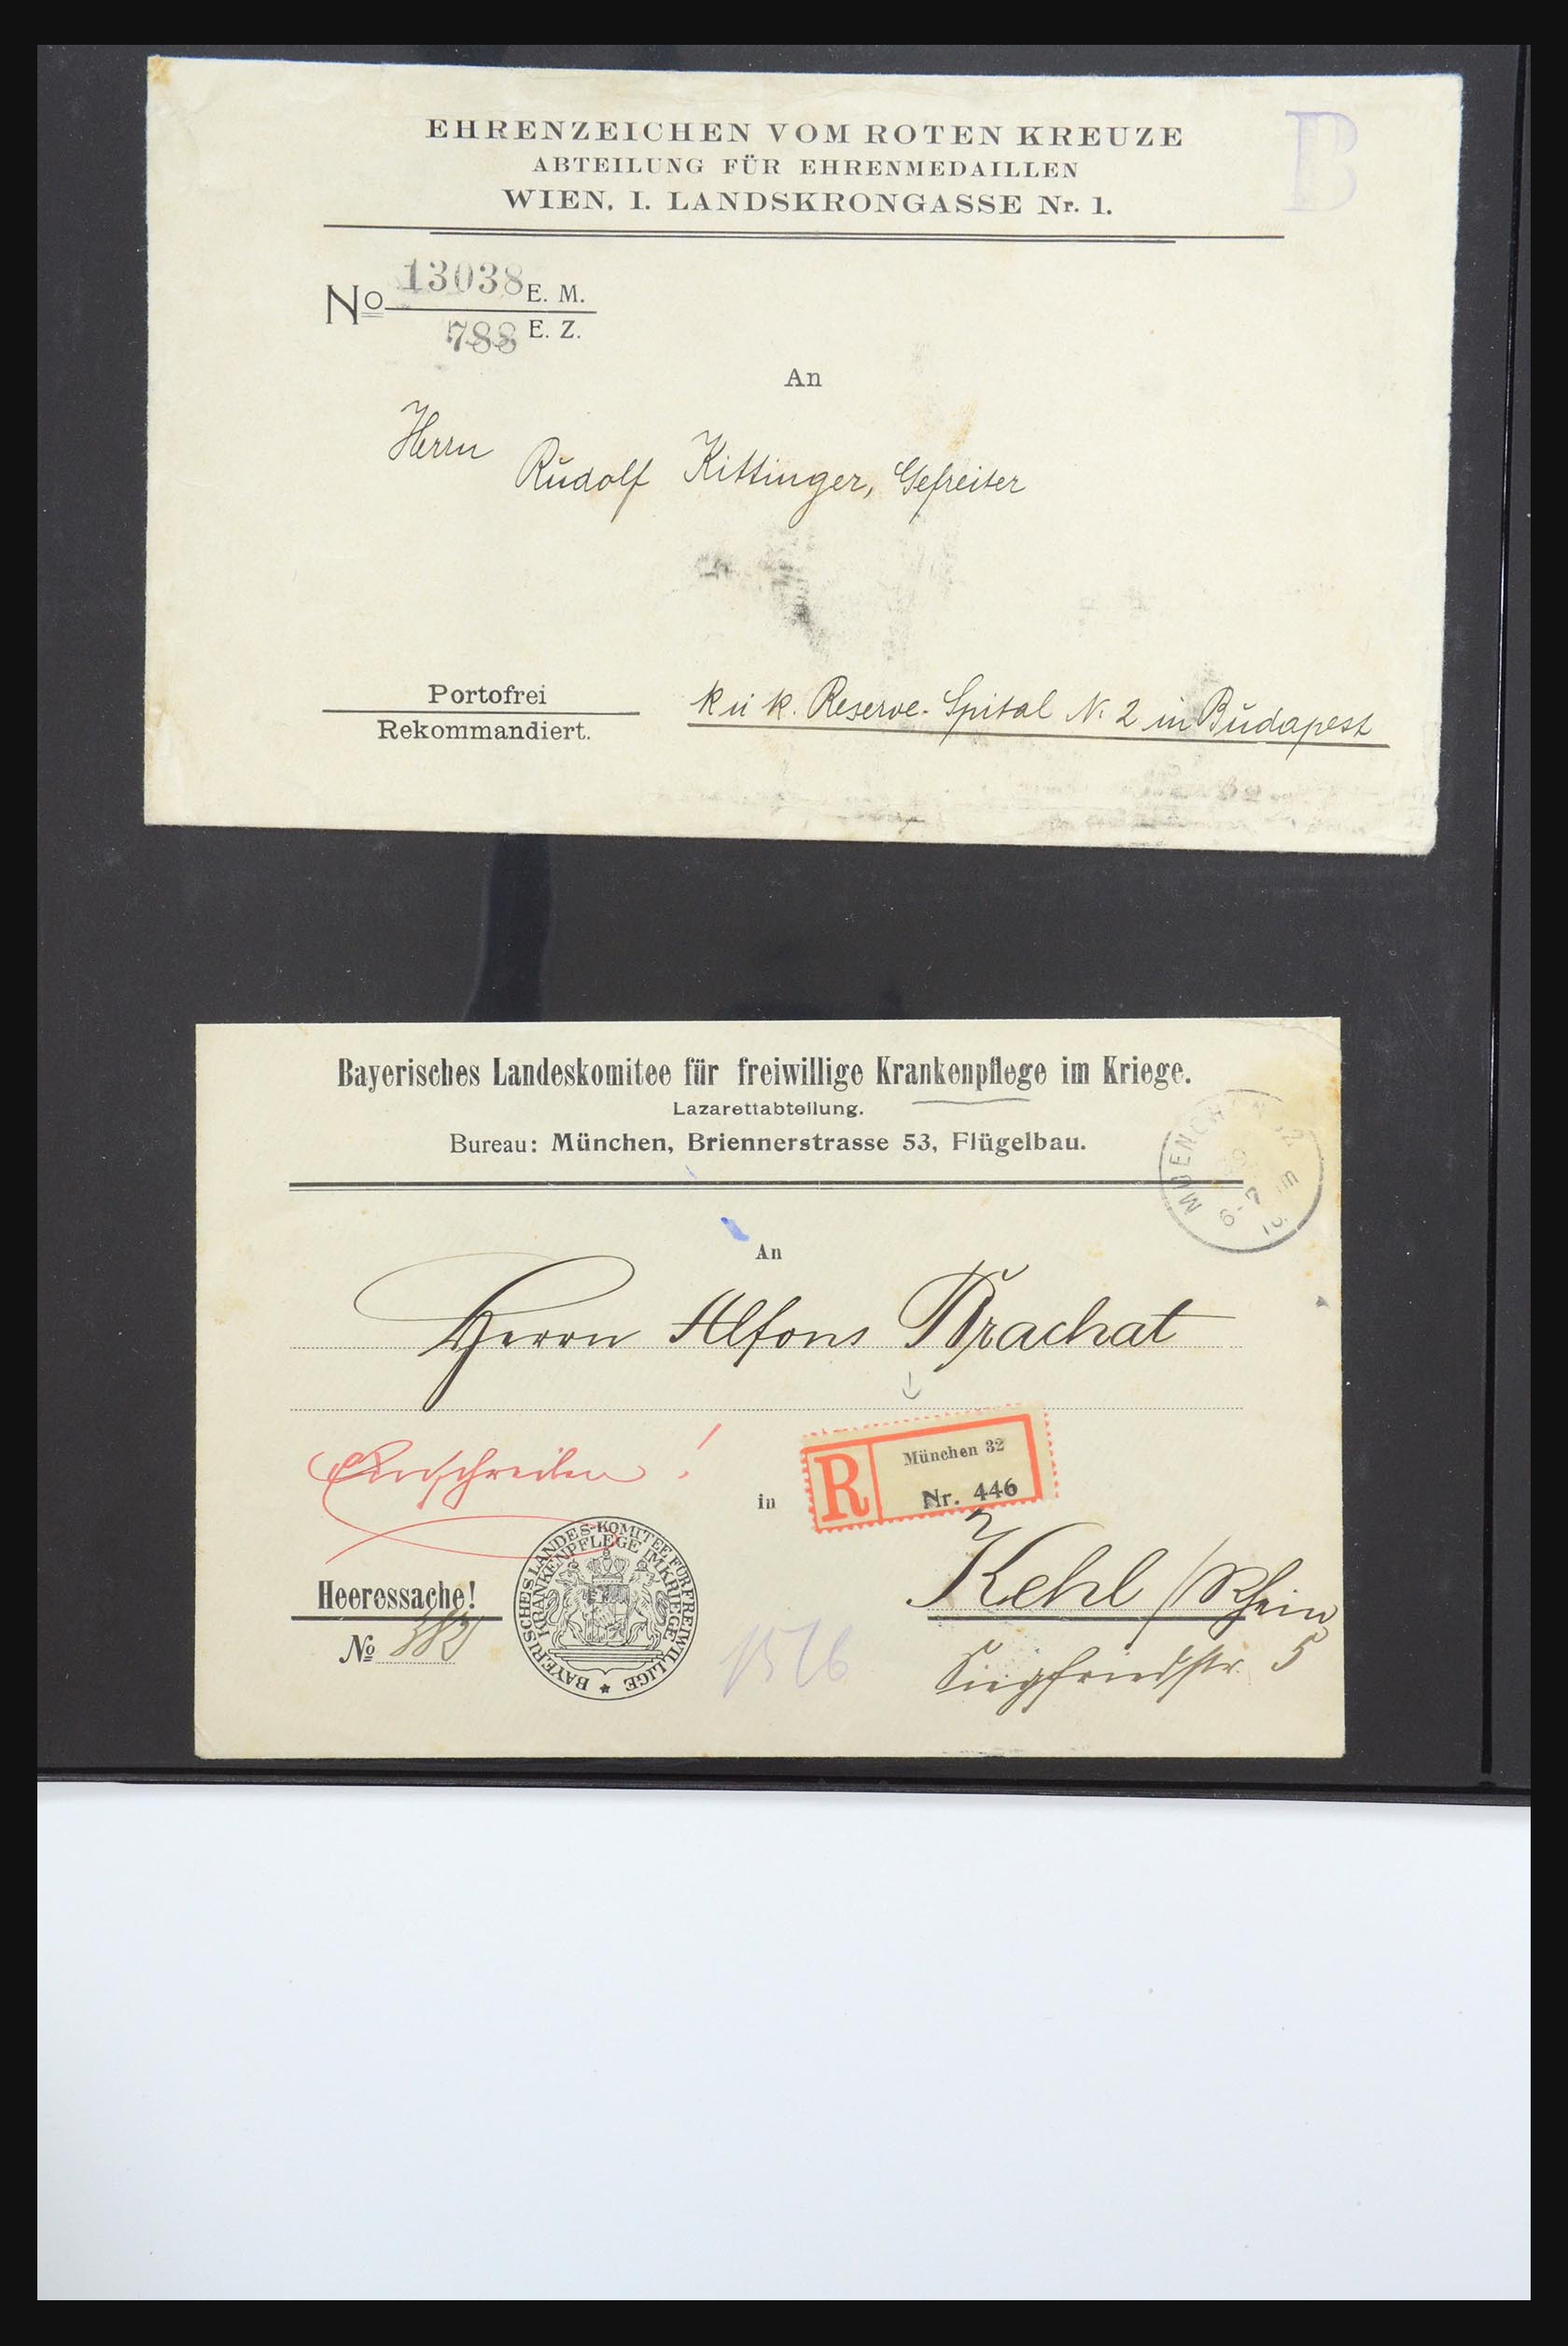 EHRENZEICHEN VOM ROTEN KREUZE
B
ABTEILUNG FÜR EHRENMEDAILLEN
WIEN, I. LANDSKRONGASSE Nr. 1.
No 13038 E. M.
788 E. Z.
An
Herrn
Rudolf Kittinger, Gefreiter
Portofrei
Rekommandiert.
k u k. Reserve-Spital N: 2 in Budapest
Bayerisches Landeskomitee für freiwillige Krankenpflege im Kriege.
Lazarettabteilung.
Bureau: München, Briennerstrasse 53, Flügelbau.
MUENCHEN
6-7
An
Herrn Alfons Brachat
Einschreiben!
R München 32
Nr. 446
in
Kehl / Rhein
Siegfriedstr. 5
Heeressache!
No 382
BAYERISCHES LANDES-KOMITEE FÜR FREIWILLIGE
KRANKENPFLEGE IM KRIEGE